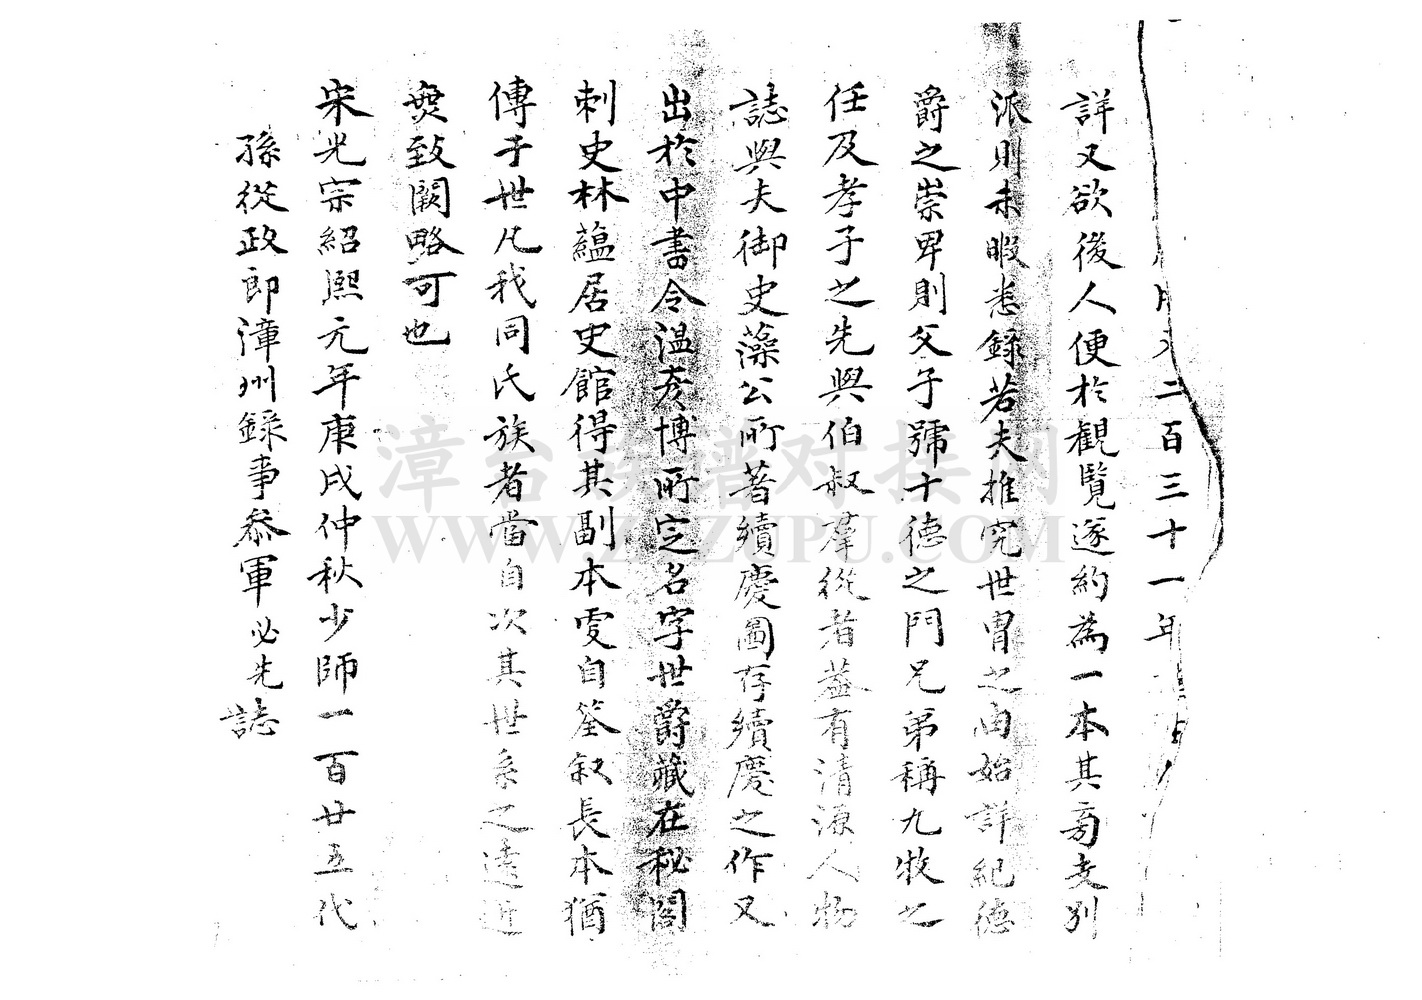 二百三十一年
詳又欲後人便於観覽遂約為一本其旁支别
派則未暇悉錄若夫推究世冑之由始詳紀德
爵之崇卑則父子號十德之門兄弟稱九牧之
任及孝子之先與伯叔羣從者盖有清源人物
誌與夫御史藻公所著續慶圖存續慶之作又
出於中書令温彦博所定名字世爵藏在秘閣
刺史林蘊居史館得其副本更自筌叙長本猶
傳于世凡我同氏族者當自次其世系之遠近
無致闕略可也
宋光宗紹熙元年庚戌仲秋少師一百廿五代
孫從政郎漳州錄事叅軍必先誌
漳台族谱对接网
WWW.ZTZUPU.COM